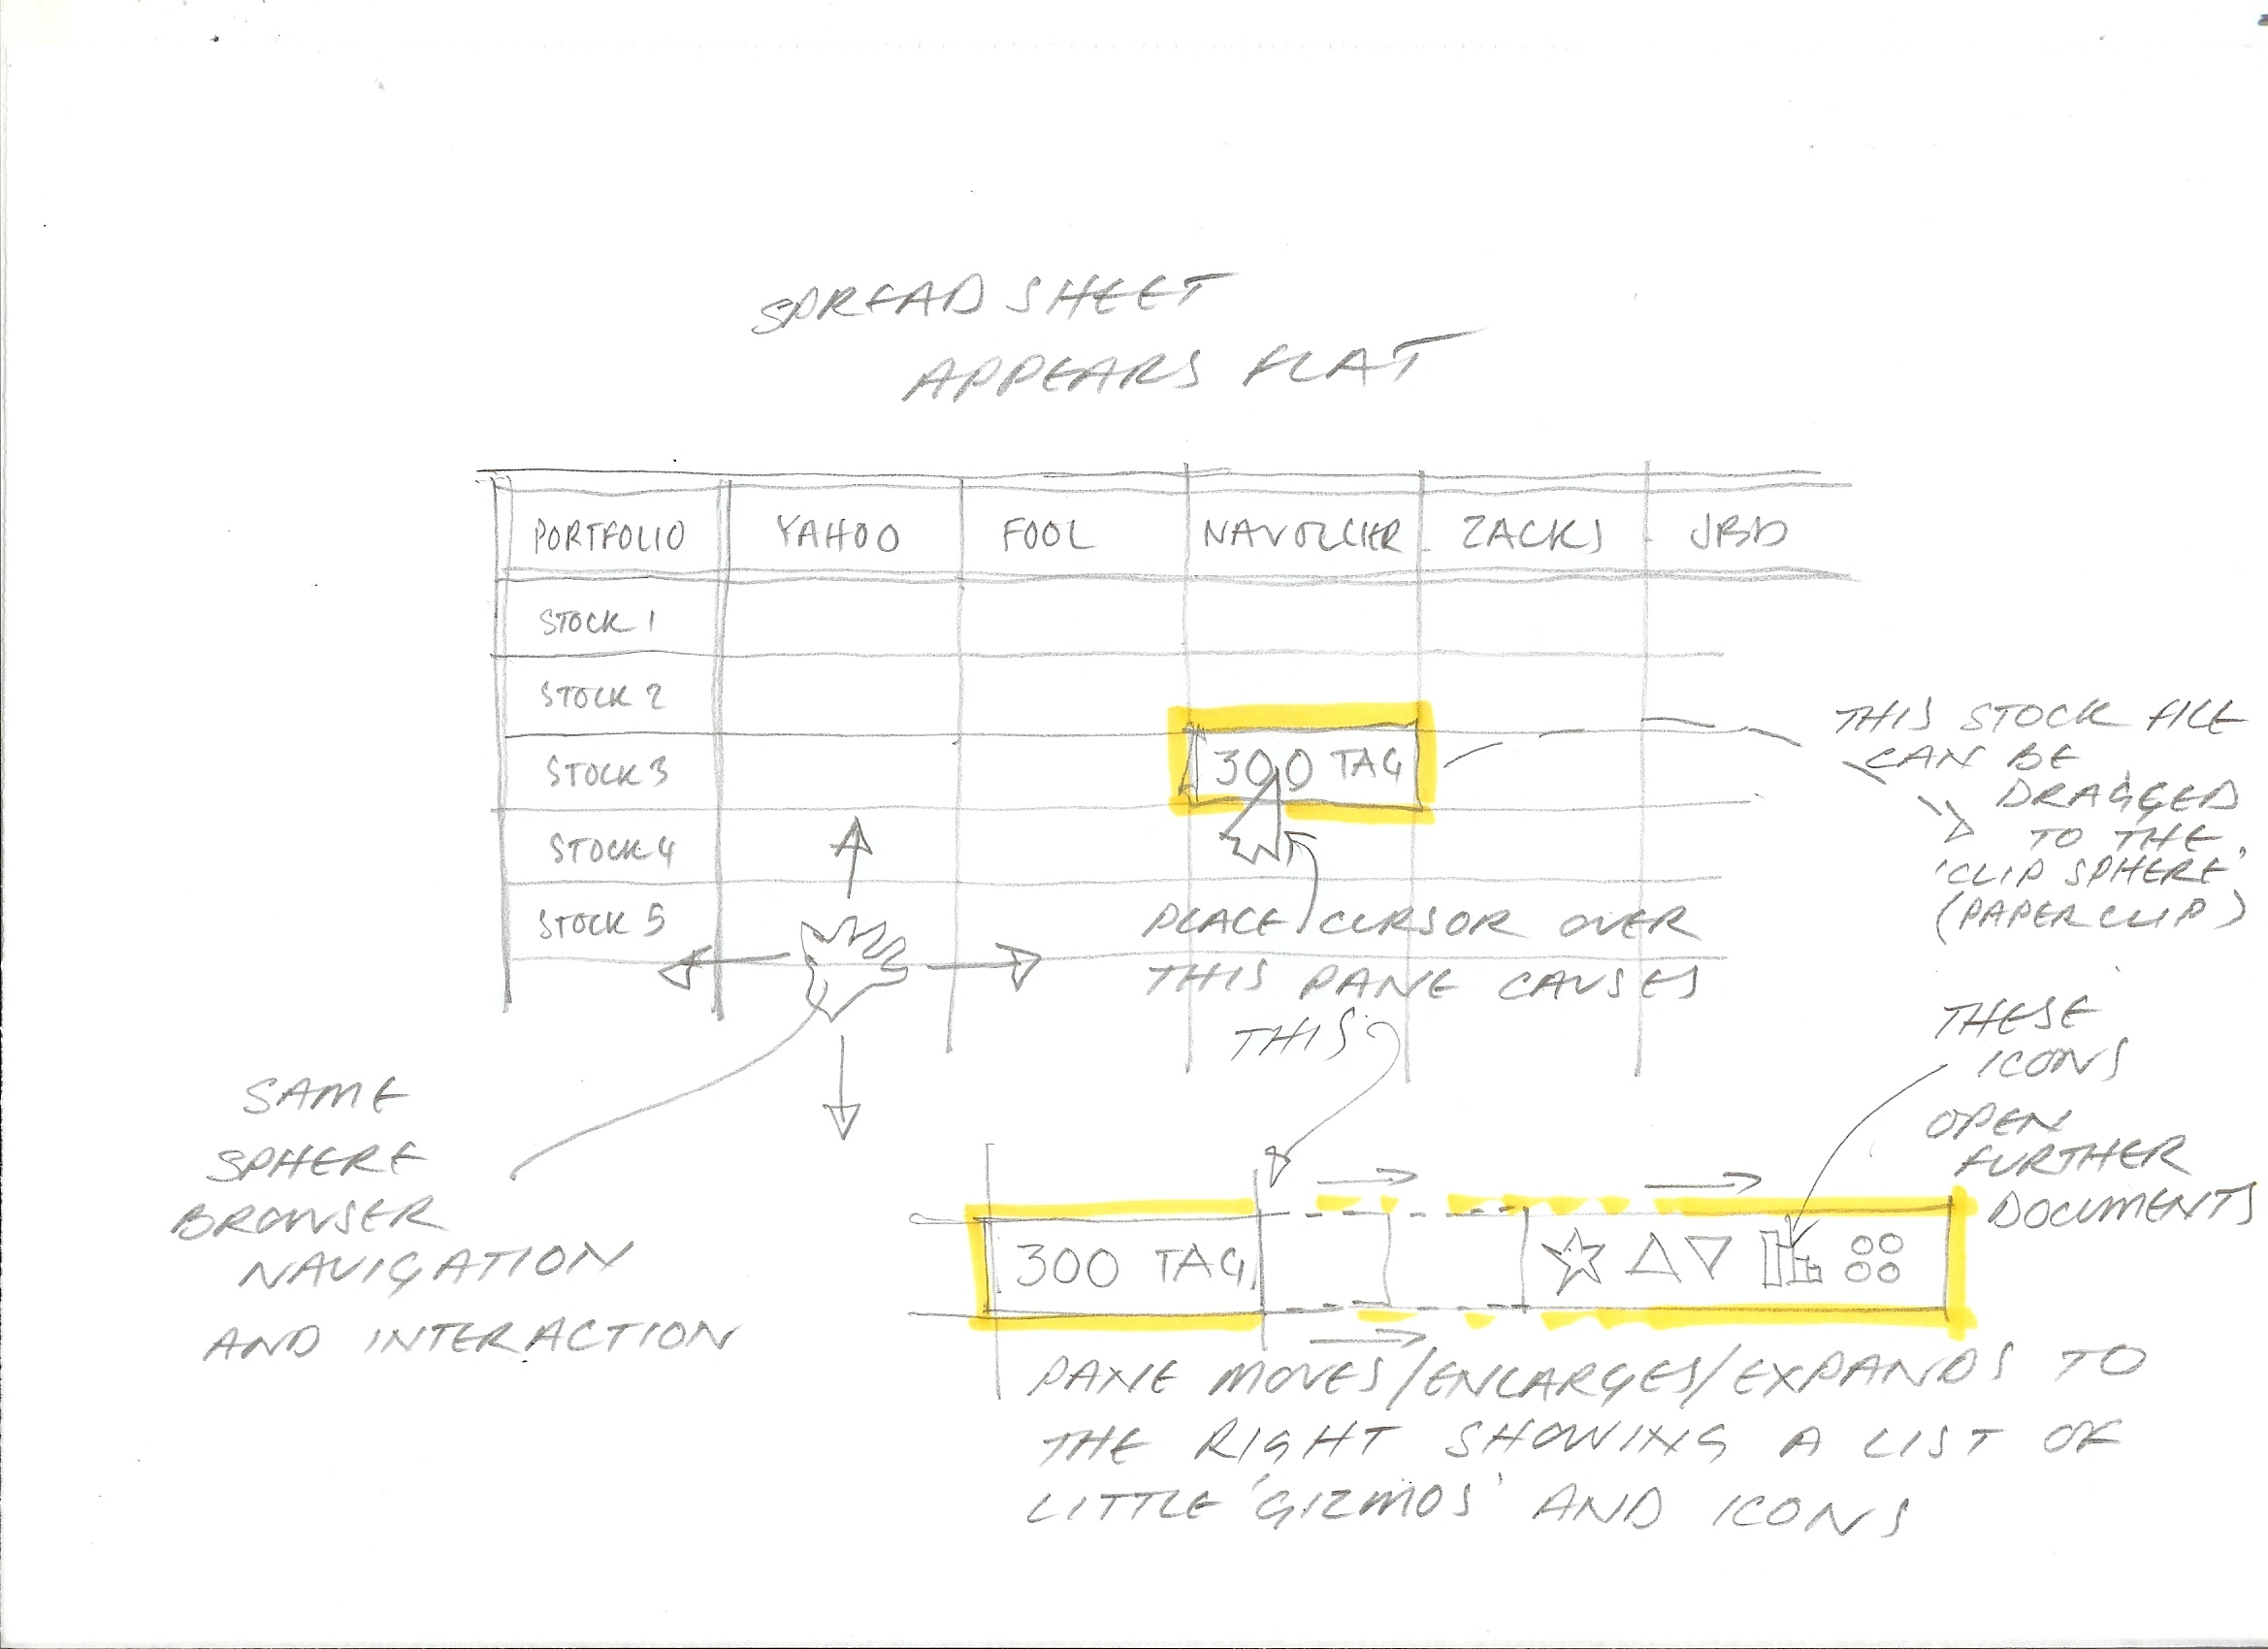 SPREAD SHEET
APPEARS FLAT
PORTFOLIO YAHOO FOOL ZACKS
STOCK 1
STOCK 2
STOCK 3 300 TAG
STOCK 4
STOCK 5
THIS STOCK FILE
CAN BE
DRAGGED
TO THE
'CLIP SPHERE'
(PAPER CLIP)
PLACE CURSOR OVER
THIS PANE CAUSES
THIS
THESE
ICONS
OPEN
FURTHER
DOCUMENTS
SAME
SPHERE
BROWSER
NAVIGATION
AND INTERACTION
300 TAG
PANE MOVES/ENLARGES/EXPANDS TO
THE RIGHT SHOWING A LIST OF
LITTLE 'GIZMOS' AND ICONS